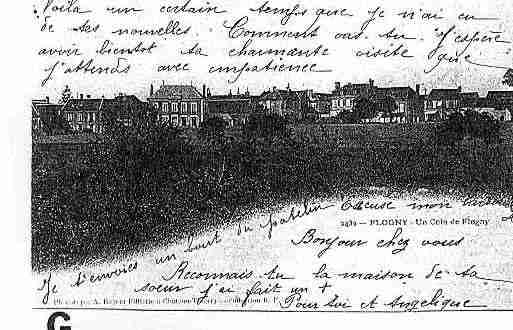 Voilà un certain temps que je n'ai eu
de tes nouvelles. Comment vas tu. J'espère
avoir bientôt ta charmante visite que
j'attends avec impatience
Excuse mon
2482 — FLOGNY - Un Coin de Flogny
Je t'envoies un bout du patelin
Bonjour chez vous
Reconnais tu la maison de ta
soeur j'ai fait un +
Pour toi et Angélique
G